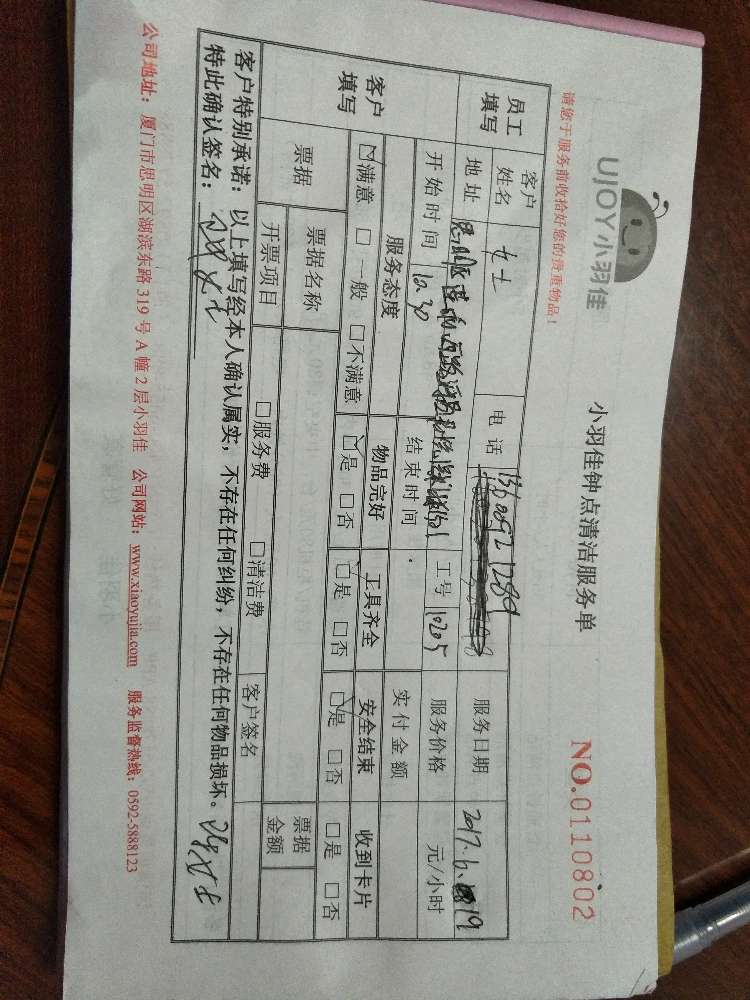 UJOY小羽佳
小羽佳钟点清洁服务单
NO.0110802
请您于服务前收拾好您的贵重物品！
员工填写
客户姓名 女士 电话 服务日期 2017.6. 19
地址 工号 10205 服务价格 元/小时
开始时间 10.30 结束时间 实付金额
客户填写
服务态度 物品完好 工具齐全 安全结束 收到卡片
☑满意 □一般 □不满意 ☑是 □否 ☑是 □否 ☑是 □否 □是 □否
票据 票据名称 票据金额
开票项目 □服务费 □清洁费 客户签名
客户特别承诺：以上填写经本人确认属实，不存在任何纠纷，不存在任何物品损坏。
特此确认签名：
公司地址：厦门市思明区湖滨东路319号A幢2层小羽佳 公司网站：www.xiaoyujia.com 服务监督热线：0592-5888123